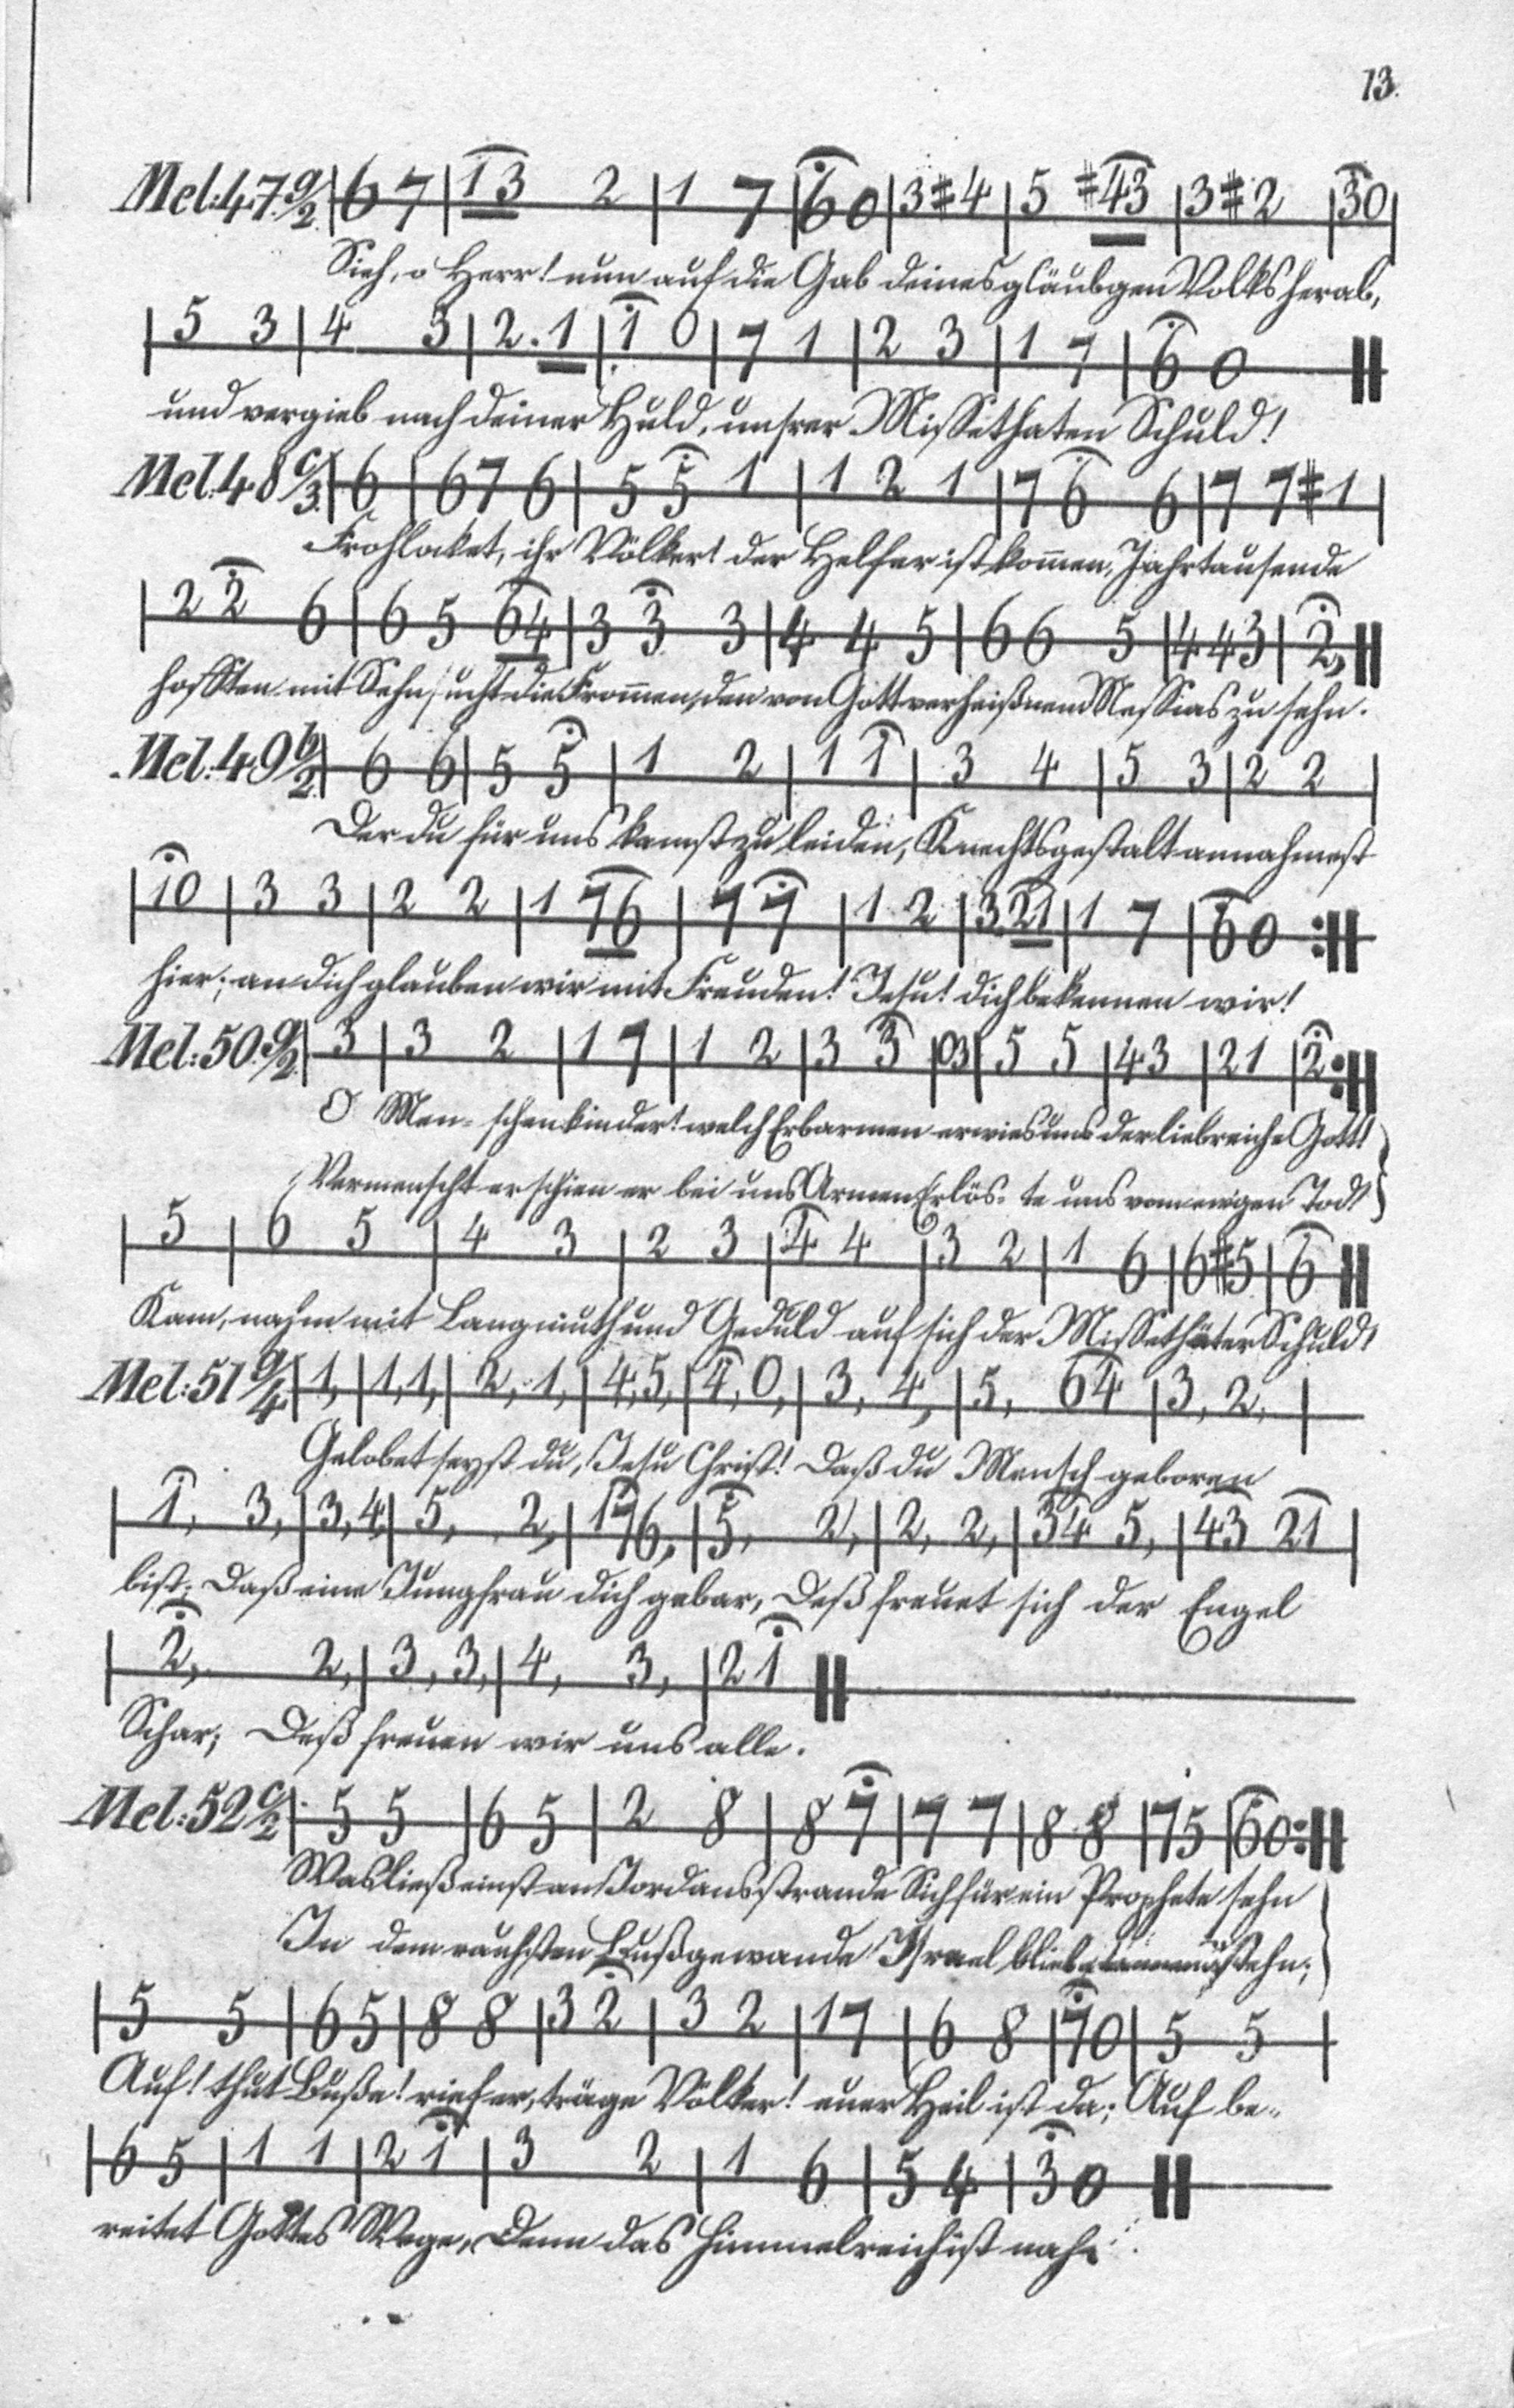 13.
Mel:47. g/2. | 6 7 | 1 3 2 | 1 7 | 6 0 | 3 #4 | 5 #43 | 3 #2 | 30 |
Sieh, o Herr! nun auf die Gab deines gläubgen Volks herab,
| 5 3 | 4 3 | 2. 1 | 1 0 | 7 1 | 2 3 | 1 7 | 6 0 ||
und vergieb nach deiner Huld, unsrer Missethaten Schuld!
Mel.48 c/3. | 6 | 6 7 6 | 5 5 1 | 1 2 1 | 7 6 6 | 7 7 #1 |
Frohlocket, ihr Völker! der Helfer ist kommen, Jahrtausende
| 2 2 6 | 6 5 64 | 3 3 3 | 4 4 5 | 6 6 5 | 4 4 3 | 2, ||
hofften mit Sehnsucht die Frommen, den von Gott verheißnen Messias zu sehn.
Mel:49 b/2. | 6 6 | 5 5 | 1 2 | 1 1 | 3 4 | 5 3 | 2 2 |
Der du für uns kamst zu leiden, Knechtsgestalt annahmest
| 10 | 3 3 | 2 2 | 1 76 | 7 7 | 1 2 | 3.21 | 1 7 | 6 0 :||
hier; an dich glauben wir mit Freuden! Jesu! dich bekennen wir!
Mel:50. g/2. | 3 | 3 2 | 1 7 | 1 2 | 3 3 | 03 | 5 5 | 43 | 21 | 2 :||
O Men- schenkinder! welch Erbarmen erwies uns der liebreiche Gott!
Vermenscht erschien er bei uns Armen Erlös- te uns vom ewgen Tod!
| 5 | 6 5 | 4 3 | 2 3 | 4 4 | 3 2 | 1 6 | 6 #5 | 6 ||
Kam, nahm mit Langmuth und Geduld auf sich der Missethäter Schuld!
Mel:51 g/4 | 1, | 1, 1, | 2, 1, | 4, 5, | 4, 0, | 3, 4, | 5, 64 | 3, 2, |
Gelobet seyst du, Jesu Christ! Daß du Mensch geboren
| 1, 3, | 3, 4, | 5, 2, | 176, | 5, 2, | 2, 2, | 34 5, | 43 21 |
bist; Daß eine Jungfrau dich gebar, Deß freuet sich der Engel
| 2, 2, | 3, 3, | 4, 3, | 2 1 ||
Schar; Deß freuen wir uns alle.
Mel:52 c/2 | 5 5 | 6 5 | 2 8 | 8 7 | 7 7 | 8 8 | 75 | 60 :||
Was ließ einst an Jordans strande Sich für ein Prophete sehn
In dem rauhsten Bußgewande Israel blieb stehn;
| 5 5 | 6 5 | 8 8 | 3 2 | 3 2 | 17 | 6 8 | 70 | 5 5 |
Auf! thut Buße! rief er, träge Völker! euer Heil ist da; Auf be-
| 6 5 | 1 1 | 2 1 | 3 2 | 1 6 | 5 4 | 3 0 ||
reitet Gottes Wege, Denn das Himmelreich ist nah.